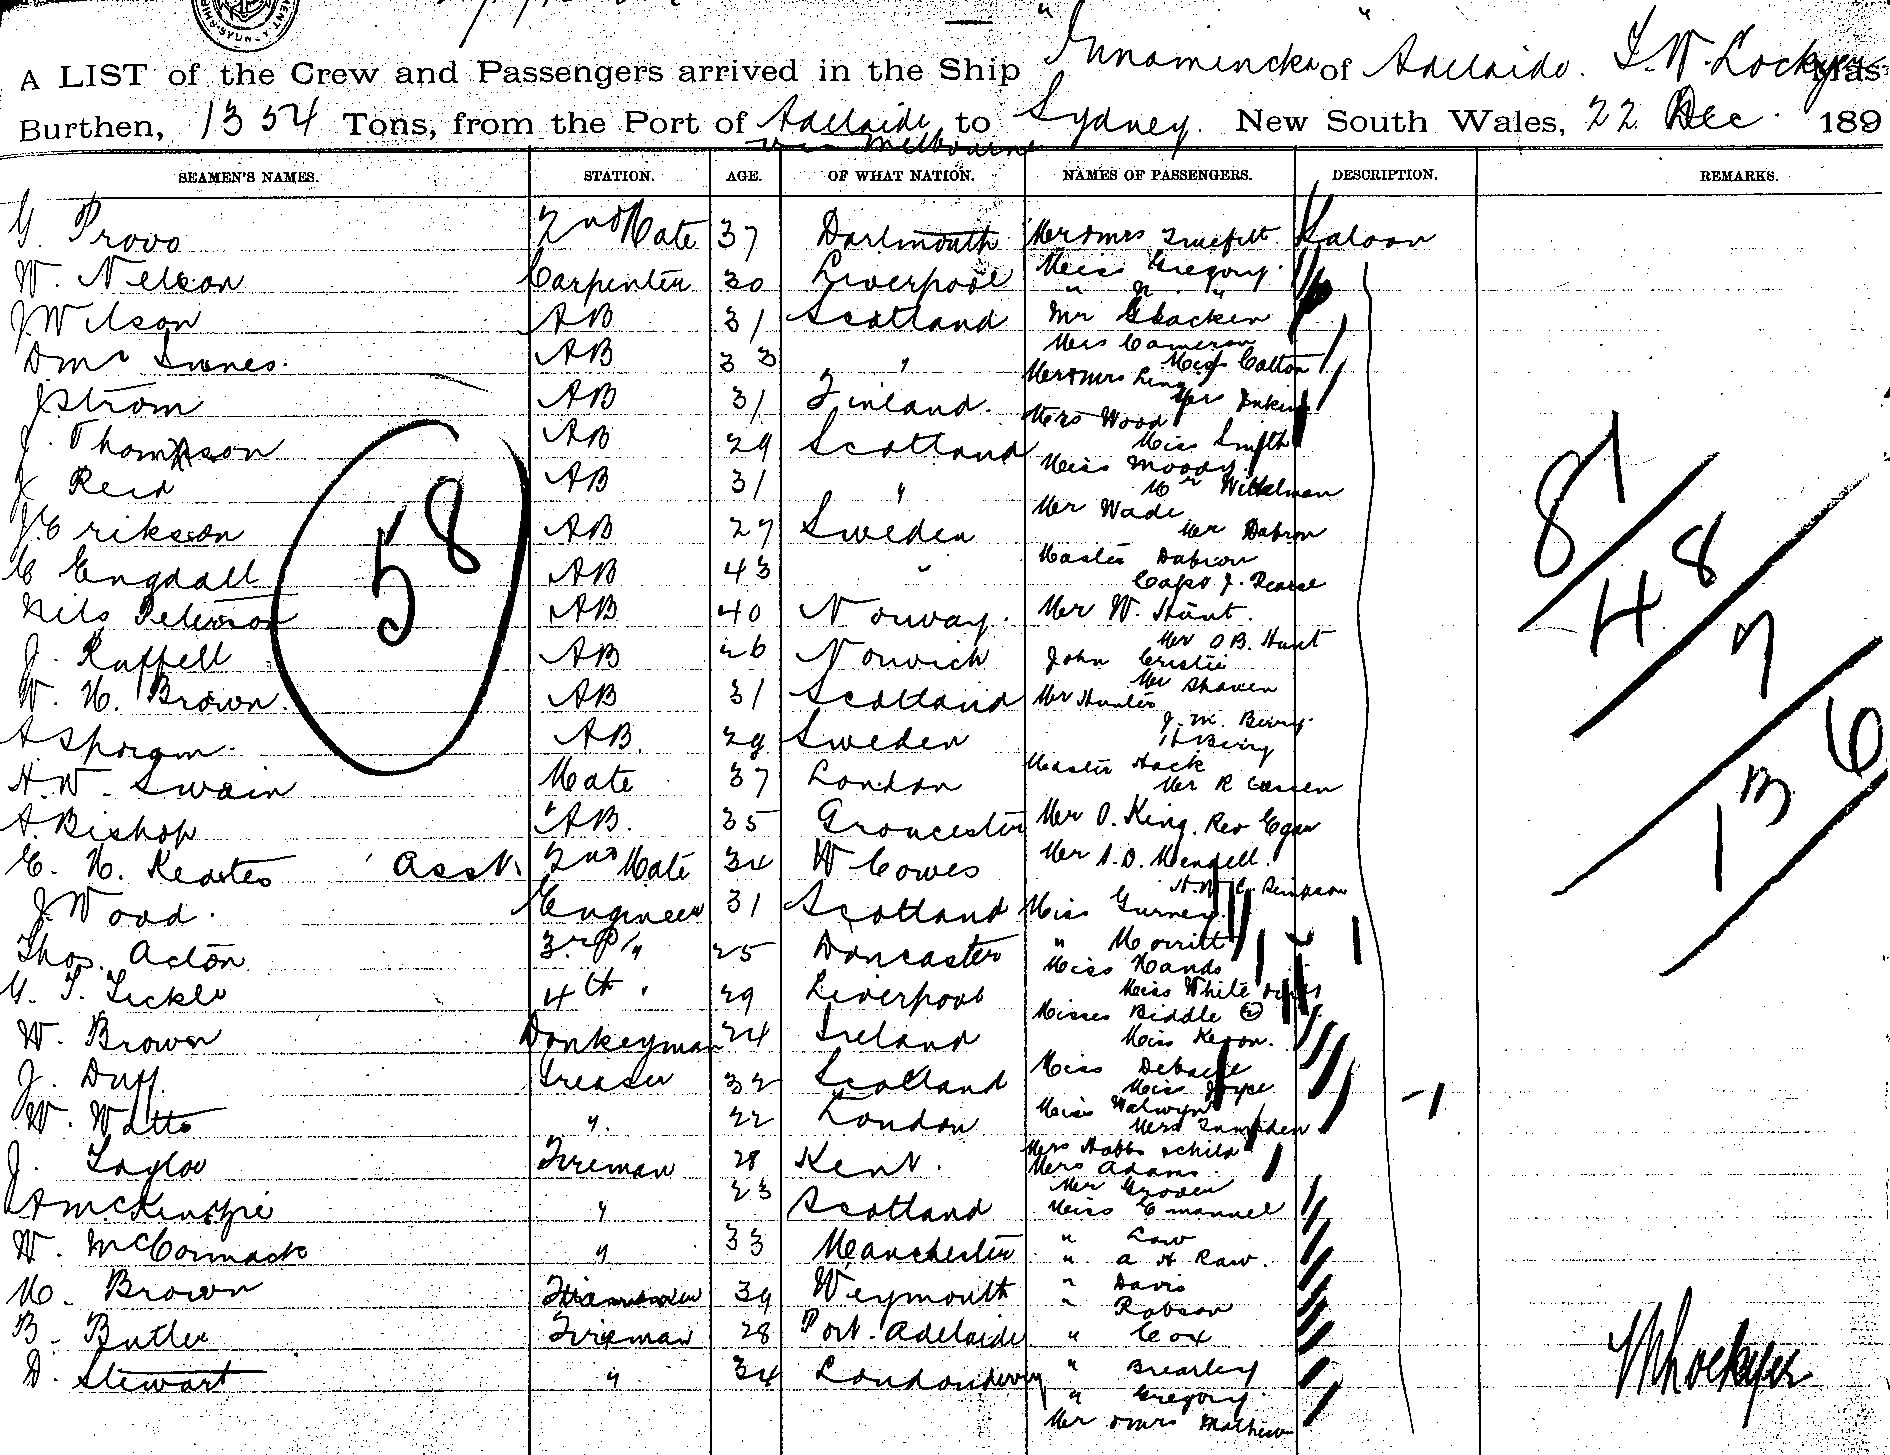 "Innamincka" of Adelaide. T. W. Lockyer
A LIST of the Crew and Passengers arrived in the Ship
Burthen, 1354 Tons, from the Port of Adelaide to Sydney. New South Wales, 22 Dec. 189
via Melbourne
SEAMEN'S NAMES. STATION. AGE. OF WHAT NATION. NAMES OF PASSENGERS. DESCRIPTION. REMARKS.
G. Provo 2nd Mate 37 Dartmouth Mr & Mrs Saloon
W. Nelson Carpenter 30 Liverpool Miss Gregory.
" " "
J Wilson AB 31 Scotland Mr
D Mc Innes. AB 33 " Mrs Cameron
Miss Colton
J Strom AB 31 Finland. Mr & Mrs Ling
Mrs
J. Thompson AB 29 Scotland Mrs Wood
Miss Smith
J Reid AB 31 " Miss Moody.
Mr Wittelman
J. Erikson AB 27 Sweden Mr Wade
Mr Dabron
C Engdall AB 43 " Master Dabron
Capt J. Pearse
Nils Peterson AB 40 Norway. Mr W. Hunt.
Mr O B. Hunt
J. Ruffell AB 26 Norwich John Cristie
Mr Shawen
W. H. Brown. AB 31 Scotland Mr Hunter
J. M. Beiry.
H Beiry
A Sporgm. AB. 29 Sweden
H. W. Swain Mate 37 London Master Hack
Mr R
A. Bishop AB. 35 Groncester Mr O. King. Rev Egan
E. H. Keates Asst. 2nd Mate 34 W Cowes Mr A. D. Mendell.
H. W. C. Simpson
J. Wood. Engineer 31 Scotland Miss Gurney
Thos. Acton 3rd " 25 Doncaster " Morritt
Miss Hands
G. T. Tickle 4th " 29 Liverpool Miss White
Misses Biddle (2)
W. Brown Donkeyman 24 Ireland Miss Keron.
J. Duff. Greaser 32 Scotland Miss
Miss Joype
W. Watts ". 22 London Miss Walwyn
Mrs
J. Taylor Fireman 28 Kent. Mrs Hobbs & child
Mrs Adams.
A McKenzie " 23 Scotland Mr Groven
Miss Emanuel
W. McCormack " 33 Manchester " Law
" A H Raw.
M. Brown 39 Weymouth " Davis
" Robson
B. Butler Fireman 28 Port. Adelaide " Cox
D. Stewart " 34 Londonderry " Brearley
" Gregory.
Mr & Mrs Mathews
58
81
48
7
136
T W Lockyer